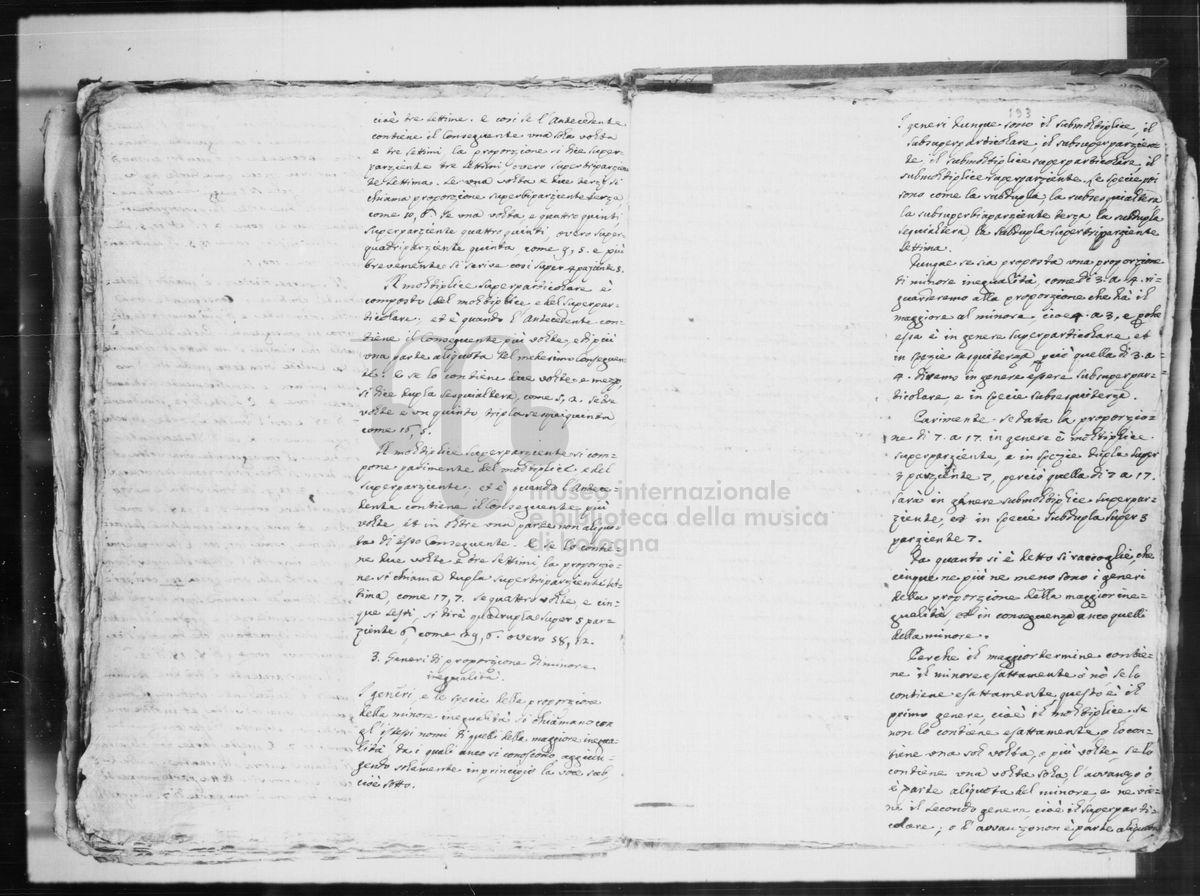 cioè tre settime. e così se l'Antecedente
contiene il Conseguente una sola volta
e tre settimi la proporzione si dice super-
parziente tre settimi overo supertriparzien
te settima. se una volta e due terzi si
chiama proporzione superbiparziente terza,
come 10, 6. se una volta e quattro quinti
superparziente quattro quinti, overo super
quadriparziente quinta, come 9, 5. e più
brevemente si scrive così super 4 parziente 5.
Il moltiplice superparticolare è
composto del moltiplice e del superpar-
ticolare, et è quando l'Antecedente con-
tiene il Conseguente più volte, e di più
una parte aliquota del medesimo Conseguen
te. e se lo contiene due volte e mezo
si dice dupla sesquialtera, come 5, 2. se tre
volte e un quinto tripla sesquiquinta,
come 16, 5.
Il moltiplice superparziente si com-
pone parimente del moltiplice e del
superparziente, et è quando l'Antece-
dente contiene il Conseguente più
volte et in oltre una parte non aliquo-
ta di esso Conseguente. e se lo contie-
ne due volte e tre settimi, la proporzio-
ne si chiama dupla supertriparziente set-
tima, come 17, 7. se quattro volte, e cin-
que sesti, si dirà quadrupla super 5 par-
ziente 6 come 29, 6. overo 58, 12.
3. Generi di proporzione di minore
inegualità.
I generi, e le specie della proporzione
della minore inegualità si chiamano con
gl'istessi nomi di quelli della maggiore inequa-
lità da i quali anco si conoscono, aggiun-
gendo solamente in principio la voce sub,
cioè sotto.
193
I generi dunque sono il submoltiplice, il
subsuperparticolare, il subsuperparzien
te, il submoltiplice superparticolare, il
submoltiplice superparziente. le specie poi
sono come la subdupla, la subsesquialtera,
la subsuperbiparziente terza, la subdupla
sesquialtera, la subdupla supertriparziente
settima.
Dunque se sia proposta una proporzione
di minore inegualità, come di 3. a 4. ri-
guarderemo alla proporzione che hà il
maggiore al minore, cioè 4. a 3, e perche
essa è in genere superparticolare et
in spezie sesquiterza, però quella di 3. a
4. diremo in genere essere subsuperpar-
ticolare, e in specie subsesquiterza.
Parimente se data la proporzio-
ne di 7. a 17. in genere è moltiplice
superparziente, e in spezie dupla super
3 parziente 7, perciò quella di 7 a 17.
sarà in genere submoltiplice superpar-
ziente, et in specie subdupla super 3
parziente 7.
Da quanto si è detto si raccoglie, che
cinque ne più ne meno sono i generi
della proporzione della maggior ine-
gualità, et in conseguenza anco quelli
della minore.
Perche il maggior termine contie-
ne il minore esattamente ò nò. se lo
contiene esattamente, questo è il
primo genere, cioè il moltiplice. se
non lo contiene esattamente o lo con-
tiene una sol volta, o più volte. se lo
contiene una volta sola, l'avvanzo ò
è parte aliquota del minore, e ne vie-
ne il secondo genere, cioè il superparti-
colare, o l'avvanzo non è parte aliquota
museo internazionale
e biblioteca della musica
di bologna